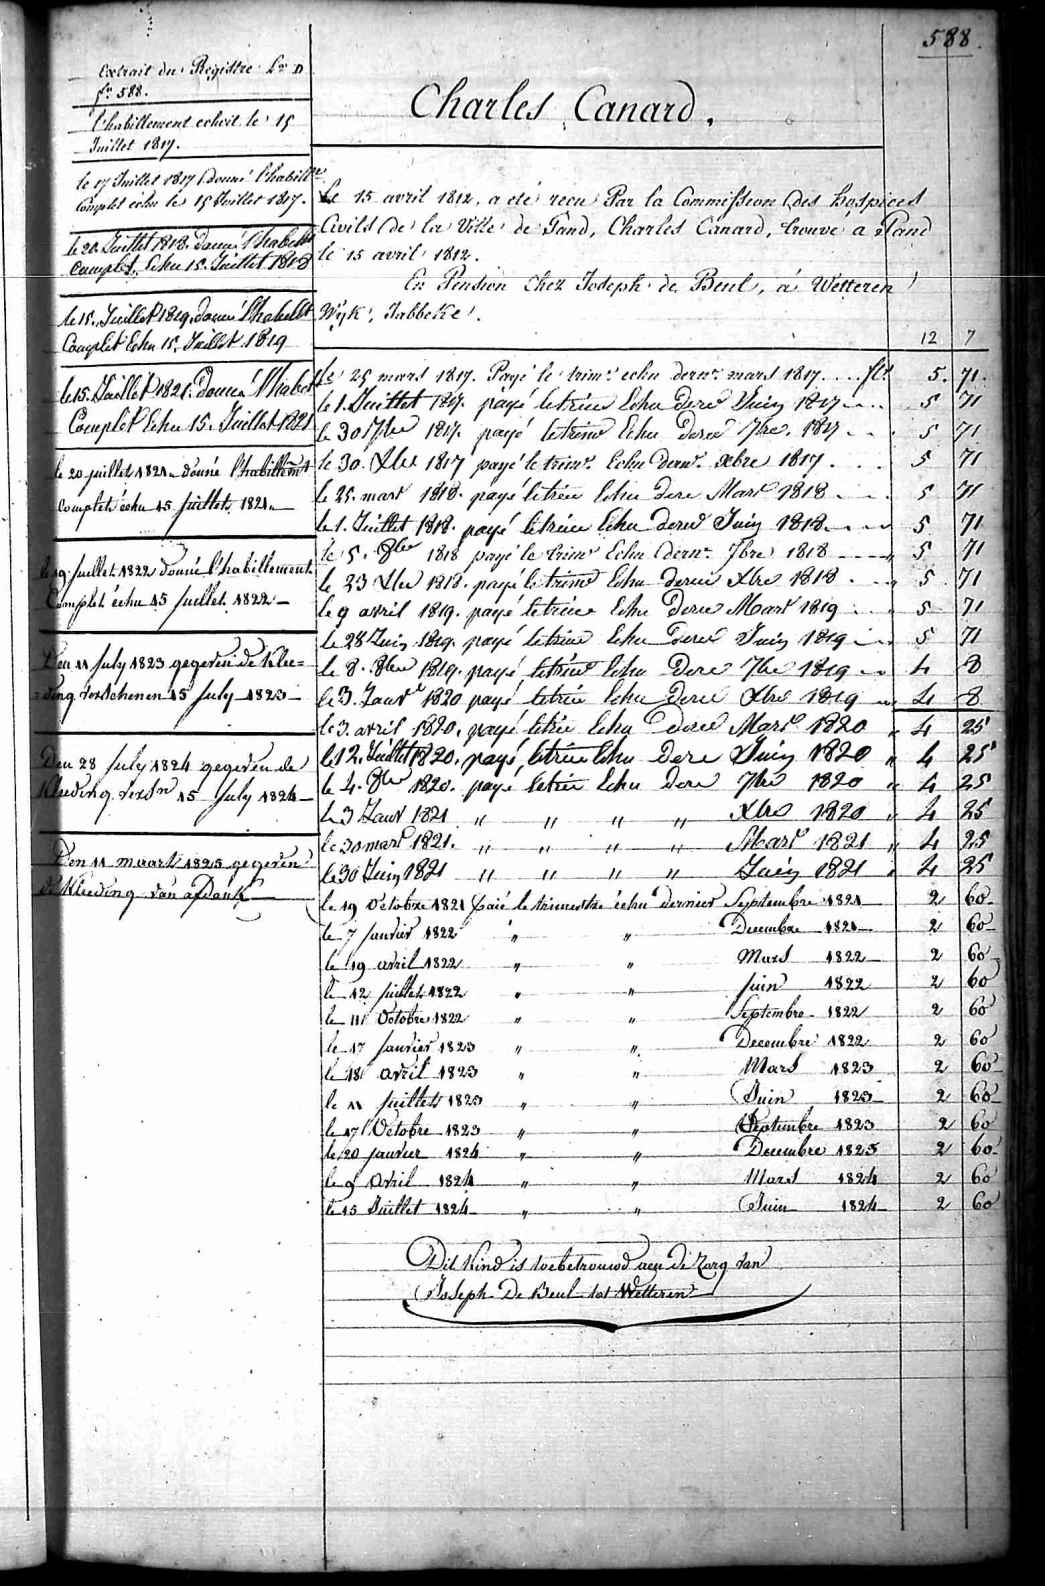 588.
Extrait du Registre Lra D
fo 588.
l'habillement echoit le 15
Juillet 1817.
le 17 Juillet 1817 donné l'habillt
complet echu le 15 Juillet 1817.
le 20 Juillet 1818. donné l'habillt
Complet, Echu 15. Juillet 1818
le 15. Juillet 1819. donné l'habillt
Complet Echu 15. Juillet 1819
le 15. Juillet 1821. donné l'habit
Complet Echu 15. Juillet 1821
le 20 juillet 1821 donné l'habillemt
complet échu 15 Juillet 1821
le 19 Juillet 1822 donné l'habillement
Complet échu 15 juillet 1822
Den 11 July 1823 gegeven de Klee=
=ding verschenen 15 July 1823
Den 28 July 1824 gegeven de
Kleeding versn 15 July 1824
Den 11 maart 1825 gegeven
de Kleeding van afdank
Charles Canard.
Le 15 avril 1812, a eté recu Par la Commission des hospices
Civils de la Ville de Gand, Charles Canard, trouvé à Gand
le 15 avril 1812.
En Pension chez Joseph de Beul, à Wetteren
Wijk, Jabbeke. 12 7
le 25 mars 1817. Payé le trimr echu dernr mars 1817 . . . . fls 5. 71.
le 1. Juillet 1817. payé le trim Echu dere Juin 1817 . . . 5 71
le 30 7bre 1817. payé le trime Echu derne 7bre. 1817 . . . 5 71
le 30. Xbre 1817 payé le trimr. Echu dernr. xbre 1817 . . . . 5 71
le 25. mars 1818. payé le trim Echu dere Mars 1818 . . . 5 71
le 1. Juillet 1818. payé le trim Echu derne Juin 1818 . . . 5 71
le 5. 8bre 1818 payé le trimr Echu dernr. 7bre 1818 " 5 71
le 23 Xbre 1818. payé le trime Echu derne Xbre 1818 . . " 5 71
le 9 avril 1819. payé le trim Echu derne Mars 1819 . . " 5 71
le 28 Juin 1819. payé le trim Echu dere Juin 1819 " 5 71
le 8. 8bre 1819. payé le trim Echu dere 7bre 1819 " 4 8
le 3. Janvr 1820 payé le trim Echu dere Xbre 1819 " 4 8
le 3. avril 1820. payé le trim Echu dere Mars 1820 " 4 25
le 12. Juillet 1820. payé le trim Echu dere Juin 1820 " 4 25
le 4. 8bre 1820. payé le trim Echu dere 7bre 1820 " 4 25
le 3 Janv 1821 " " " " Xbre 1820 " 4 25
le 30 mars 1821. " " " " Mars 1821 " 4 25
le 30 Juin 1821 " " " " Juin 1821 " 4 25
le 19 octobre 1821 paié le trimestre échu dernier Septembre 1821 2 60
le 7 janvier 1822 " " Decembre 1821 2 60
le 19 avril 1822 " " Mars 1822 2 60
le 12 juillet 1822 " " juin 1822 2 60
le 11 octobre 1822 " " Septembre 1822 2 60
le 17 janvier 1823 " " Decembre 1822 2 60
le 18 avril 1823 " " Mars 1823 2 60
le 11 juillet 1823 " " Juin 1823 2 60
le 17 Octobre 1823 " " Septembre 1823 2 60
le 20 janvier 1824 " " Decembre 1823 2 60
le 9 avril 1824 " " Mars 1824 2 60
le 15 Juillet 1824 " " Juin 1824 2 60
Dit Kind is toebetrouwd aen de Zorg van
Joseph De Beul tot Wetteren